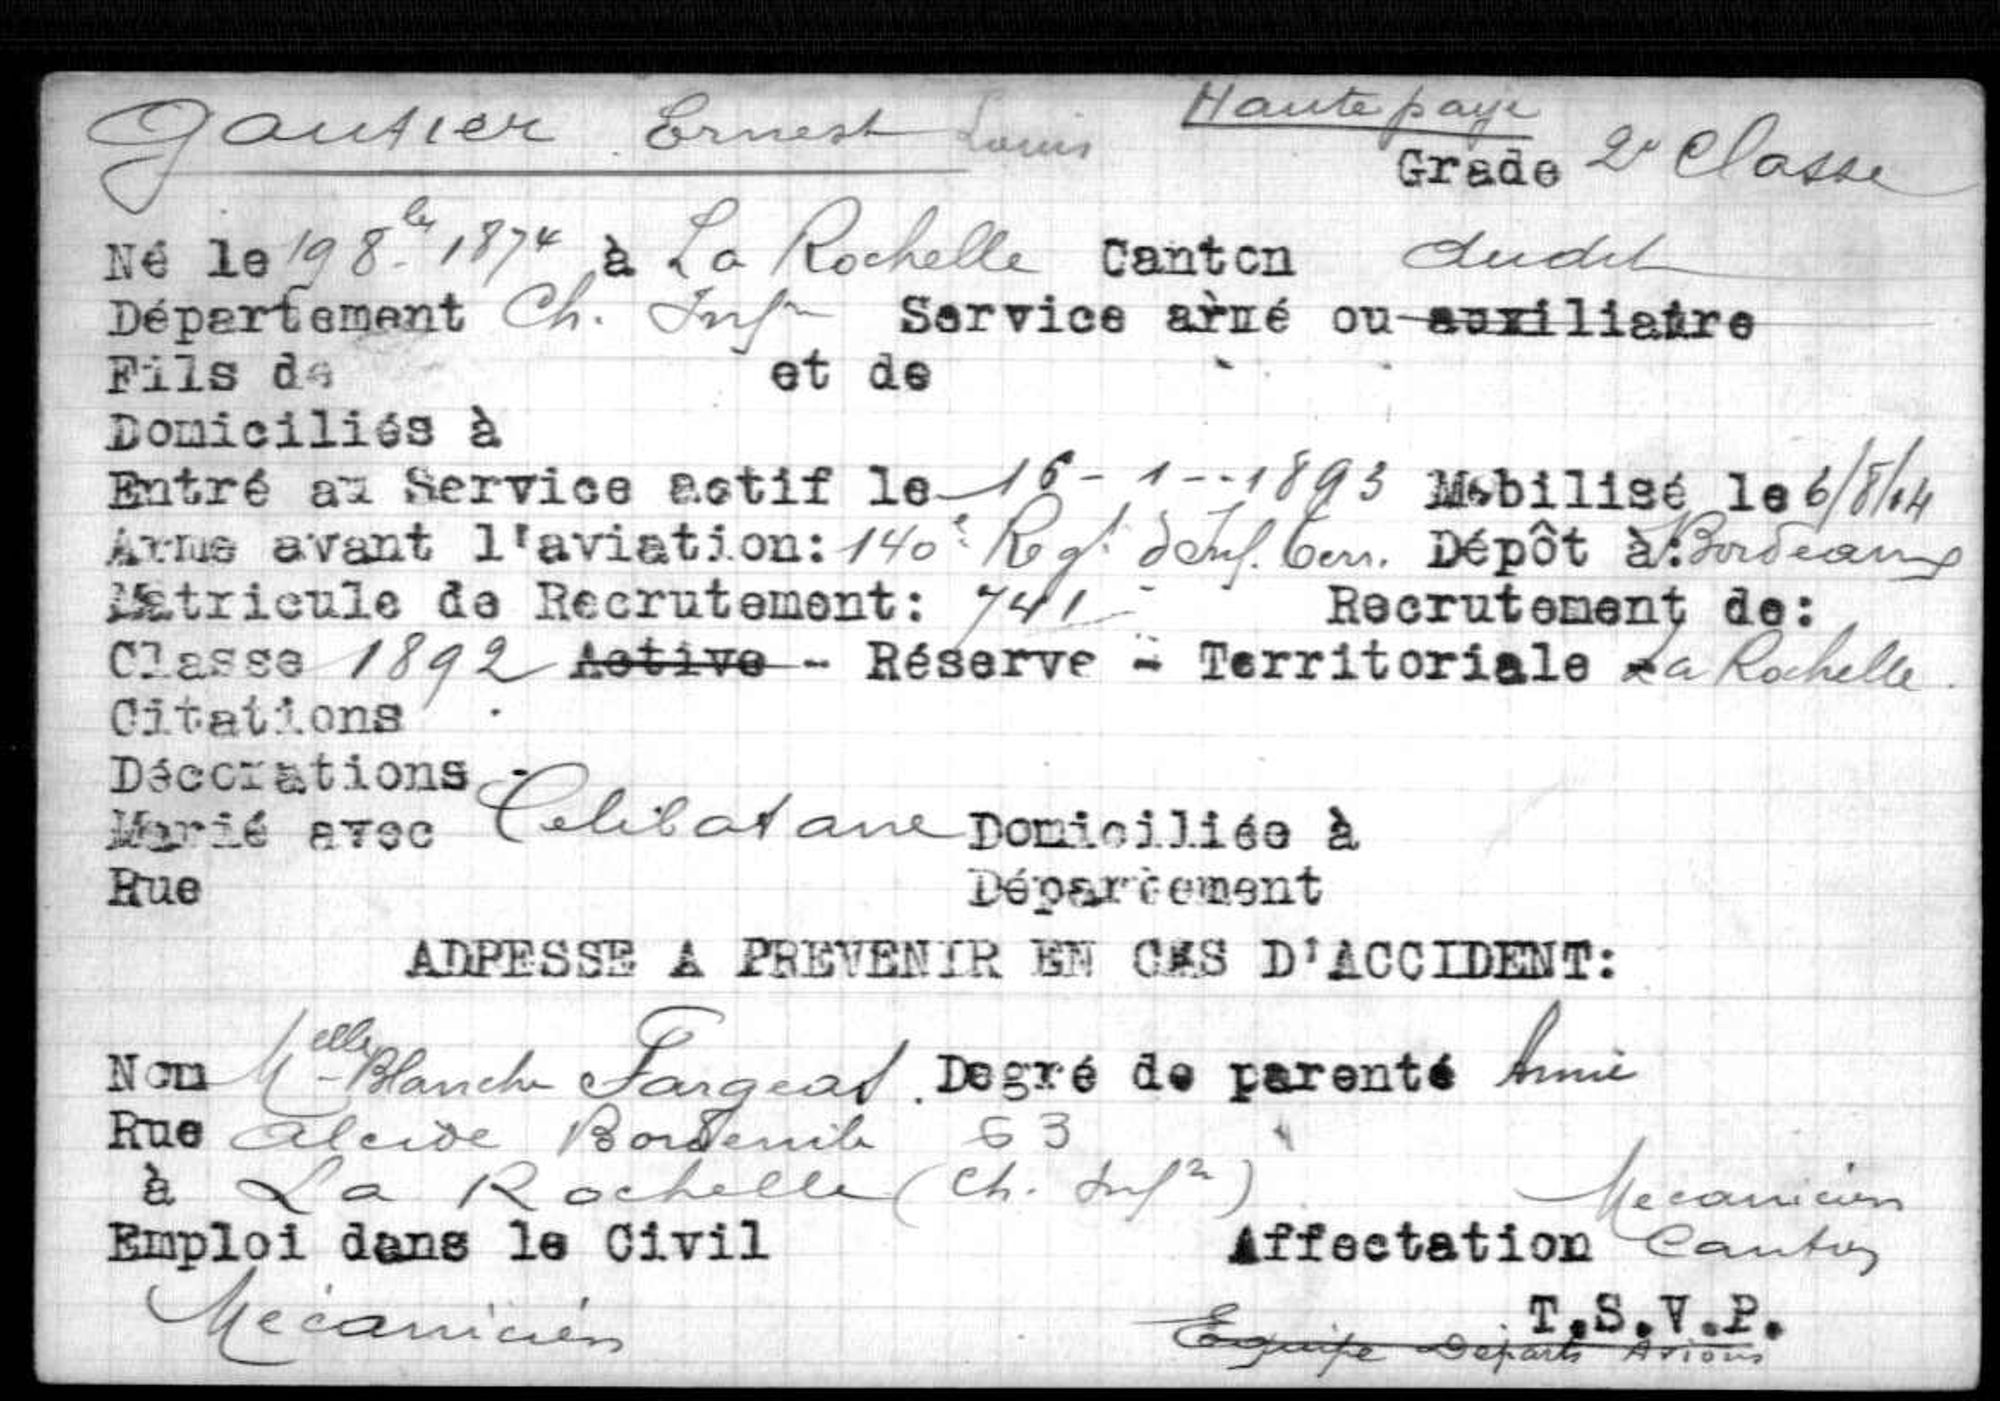 Gautier Ernest Louis
Haute paye
Grade 2e Classe
Né le 19 8bre 1874 à La Rochelle Canton dudit
Département Ch. Infre Service armé ou auxiliaire
Fils de et de
Domiciliés à
Entré au Service actif le 16-1-1893 Mobilisé le 6/8/14
Arme avant l'aviation: 140e Regt d'Inf. Terr. Dépôt à: Bordeaux
Matricule de Recrutement: 741 Recrutement de:
Classe 1892 Active - Réserve - Territoriale La Rochelle.
Citations
Décorations -
Marié avec Celibataire Domiciliée à
Rue Département
ADRESSE A PREVENIR EN CAS D'ACCIDENT:
Nom Melle Blanche Fargeat. Degré de parenté Amie
Rue Alcide Bordenile 63
à La Rochelle (Ch. Infre)
Mecanicien
Emploi dans le Civil Affectation
Mécanicien
T.S.V.P.
Equipe Departs Avions